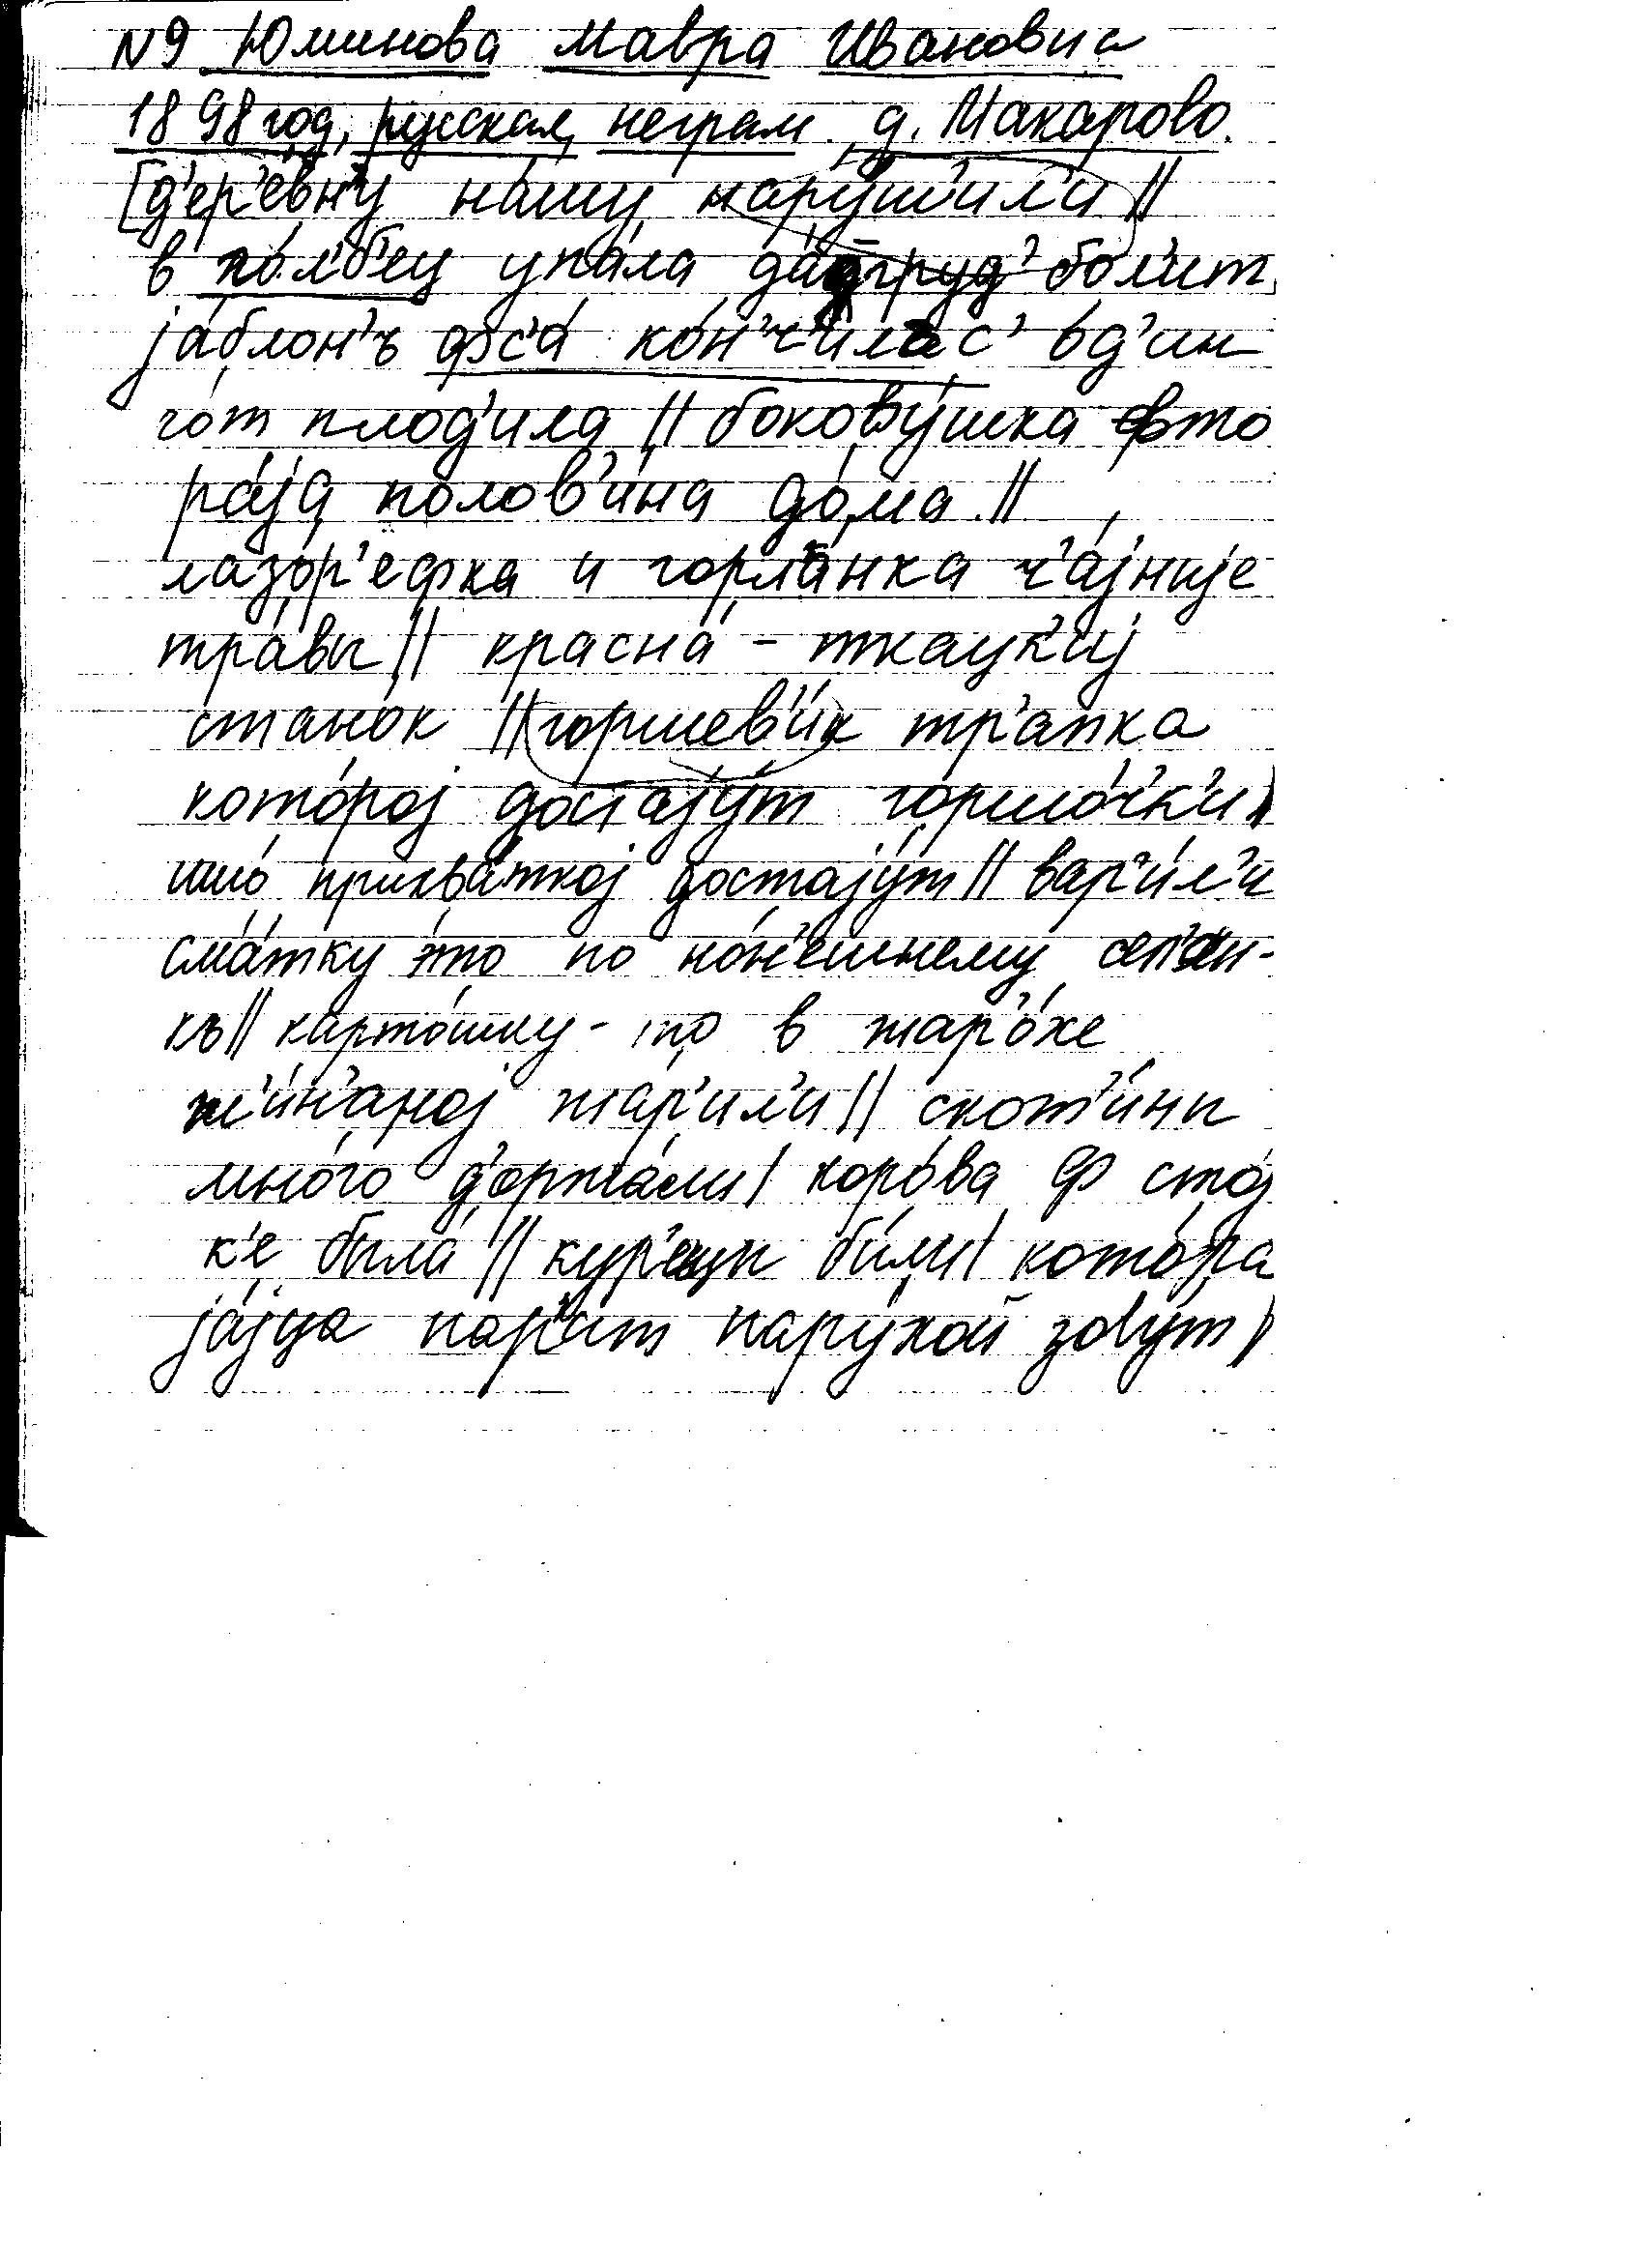 N9 Юминова Мавра Ивановна
1898 год, русская, неграм. д. Макарово.
[д'ер'е́вн'у на́шу нару́шил'и ||
в по́л'б'ец упа́ла да груд' бол'и́т
jа́блон'ъ фс'а́ ко́н'ч'илас' о́д'ин
го́т плод'и́ла || боков́ушка фто
ра́jа полов'и́на до́ма ||
лазо́р'ефка и горл'а́нка ч'а́jниjе
тра́вы || красна́ - ткацк'иj
стано́к || горшев'и́к тр'а́пка
кото́роj достаjу́т горшо́ч'к'и |
ишо́ прихва́ткоj достаjу́т || вар'и́л'и
сма́тку э́то по но́н'ешнему сел'а́н-
къ || карто́шку - то в жар'о́хе
гл'и́н'аноj жа́р'ил'и || скот'и́ны
мно́го д'оржа́ли | коро́ва ф сто́j
к'е была́ || ку́р'ицы бы́ли | кото́ра
jа́jца па́р'ит пару́хой зову́т |